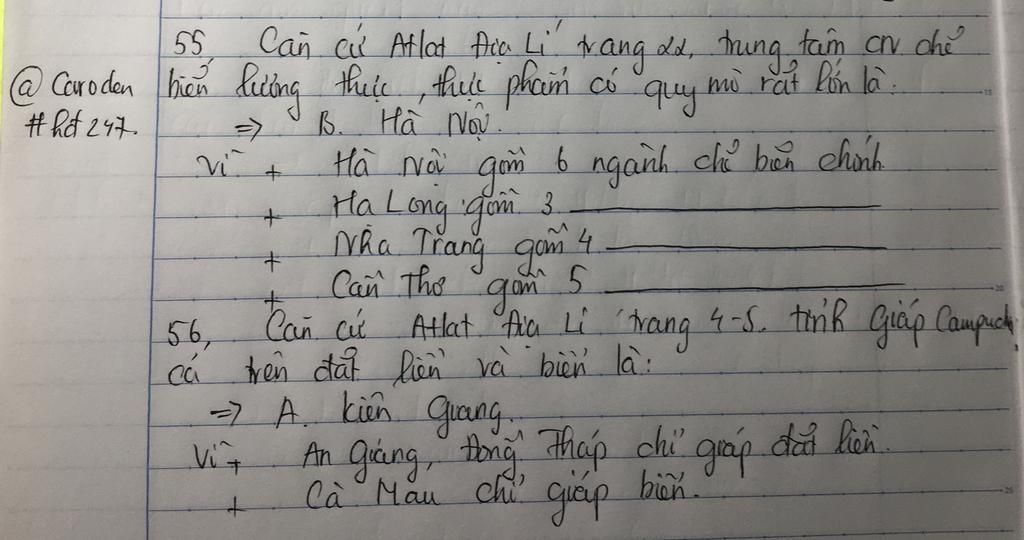 55, Căn cứ Atlat Địa Lí trang 22, trung tâm CN chế
@Caroden biến lương thực, thực phẩm có quy mô rất lớn là:
#hđ247. => B. Hà Nội.
Vì + Hà Nội gồm 6 ngành chế biến chính
+ Hạ Long gồm 3
+ Nha Trang gồm 4
+ Cần Thơ gồm 5
56, Căn cứ Atlat Địa Lí trang 4-5. tỉnh giáp Campuchia
cả trên đất liền và biển là:
=> A. Kiên Giang.
Vì + An Giang, Đồng Tháp chỉ giáp đất liền.
+ Cà Mau chỉ giáp biển.